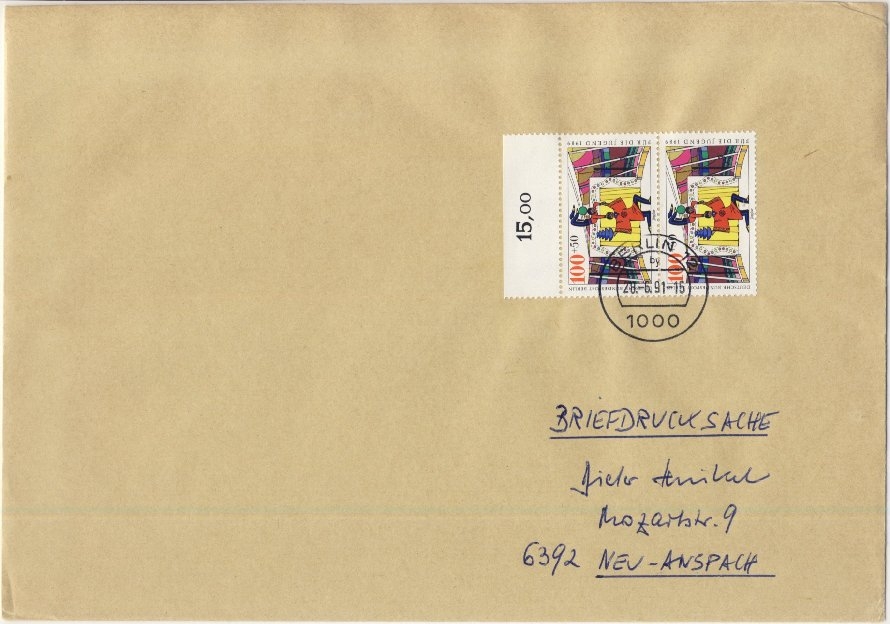 15,00
FÜR DIE JUGEND 1989
FÜR DIE JUGEND 1989
100+50
100
DEUTSCHE BUNDESPOST BERLIN
DEUTSCHE BUNDESPOST
BERLIN
by
-6.91-16
1000
BRIEFDRUCKSACHE
Dieter
Mozartstr. 9
6392 NEU-ANSPACH